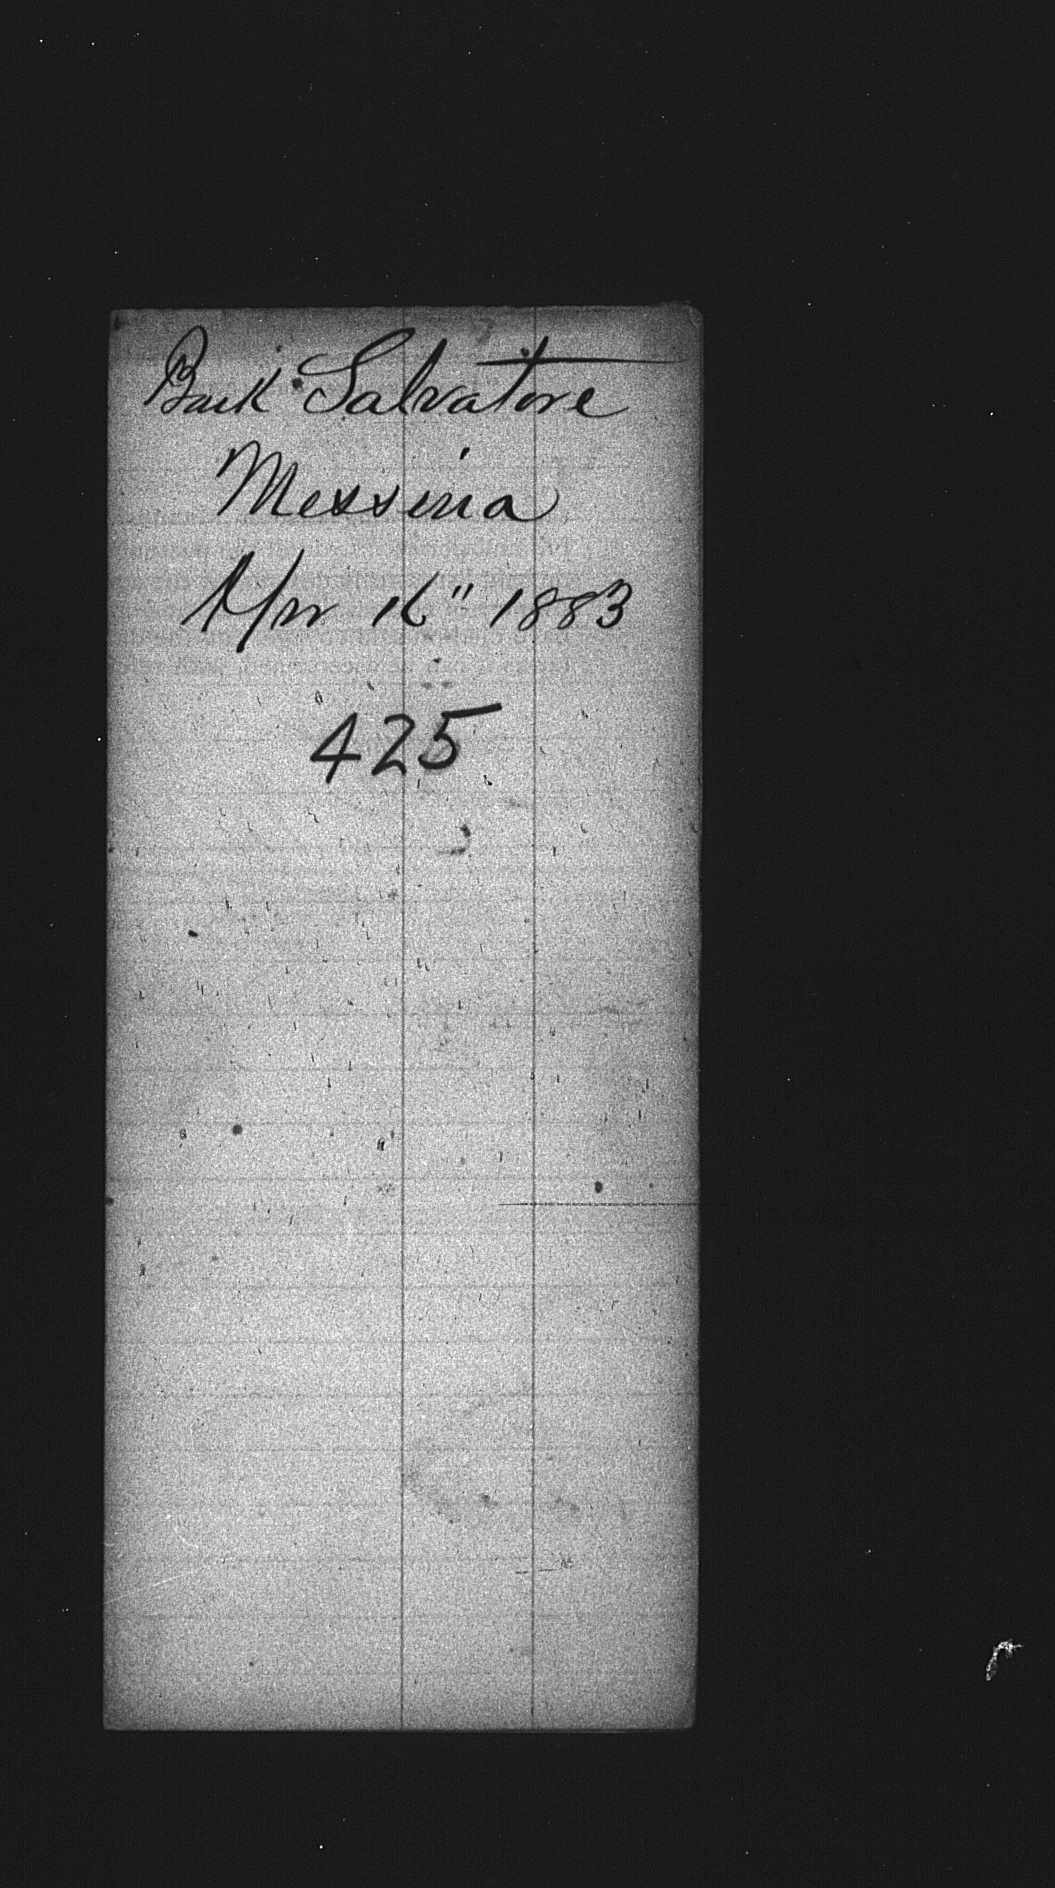 Bark Salvatore
Messina
Apr 16" 1883
425